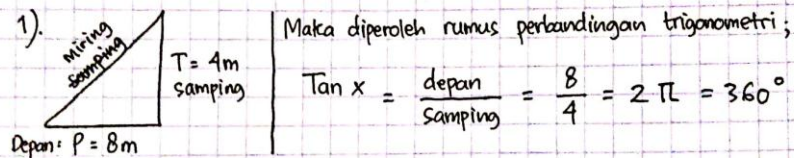 1).
Miring
Samping
T = 4m
samping
Depan : P = 8m
Maka diperoleh rumus perbandingan trigonometri ;
Tan x = depan / samping = 8 / 4 = 2 π = 360°